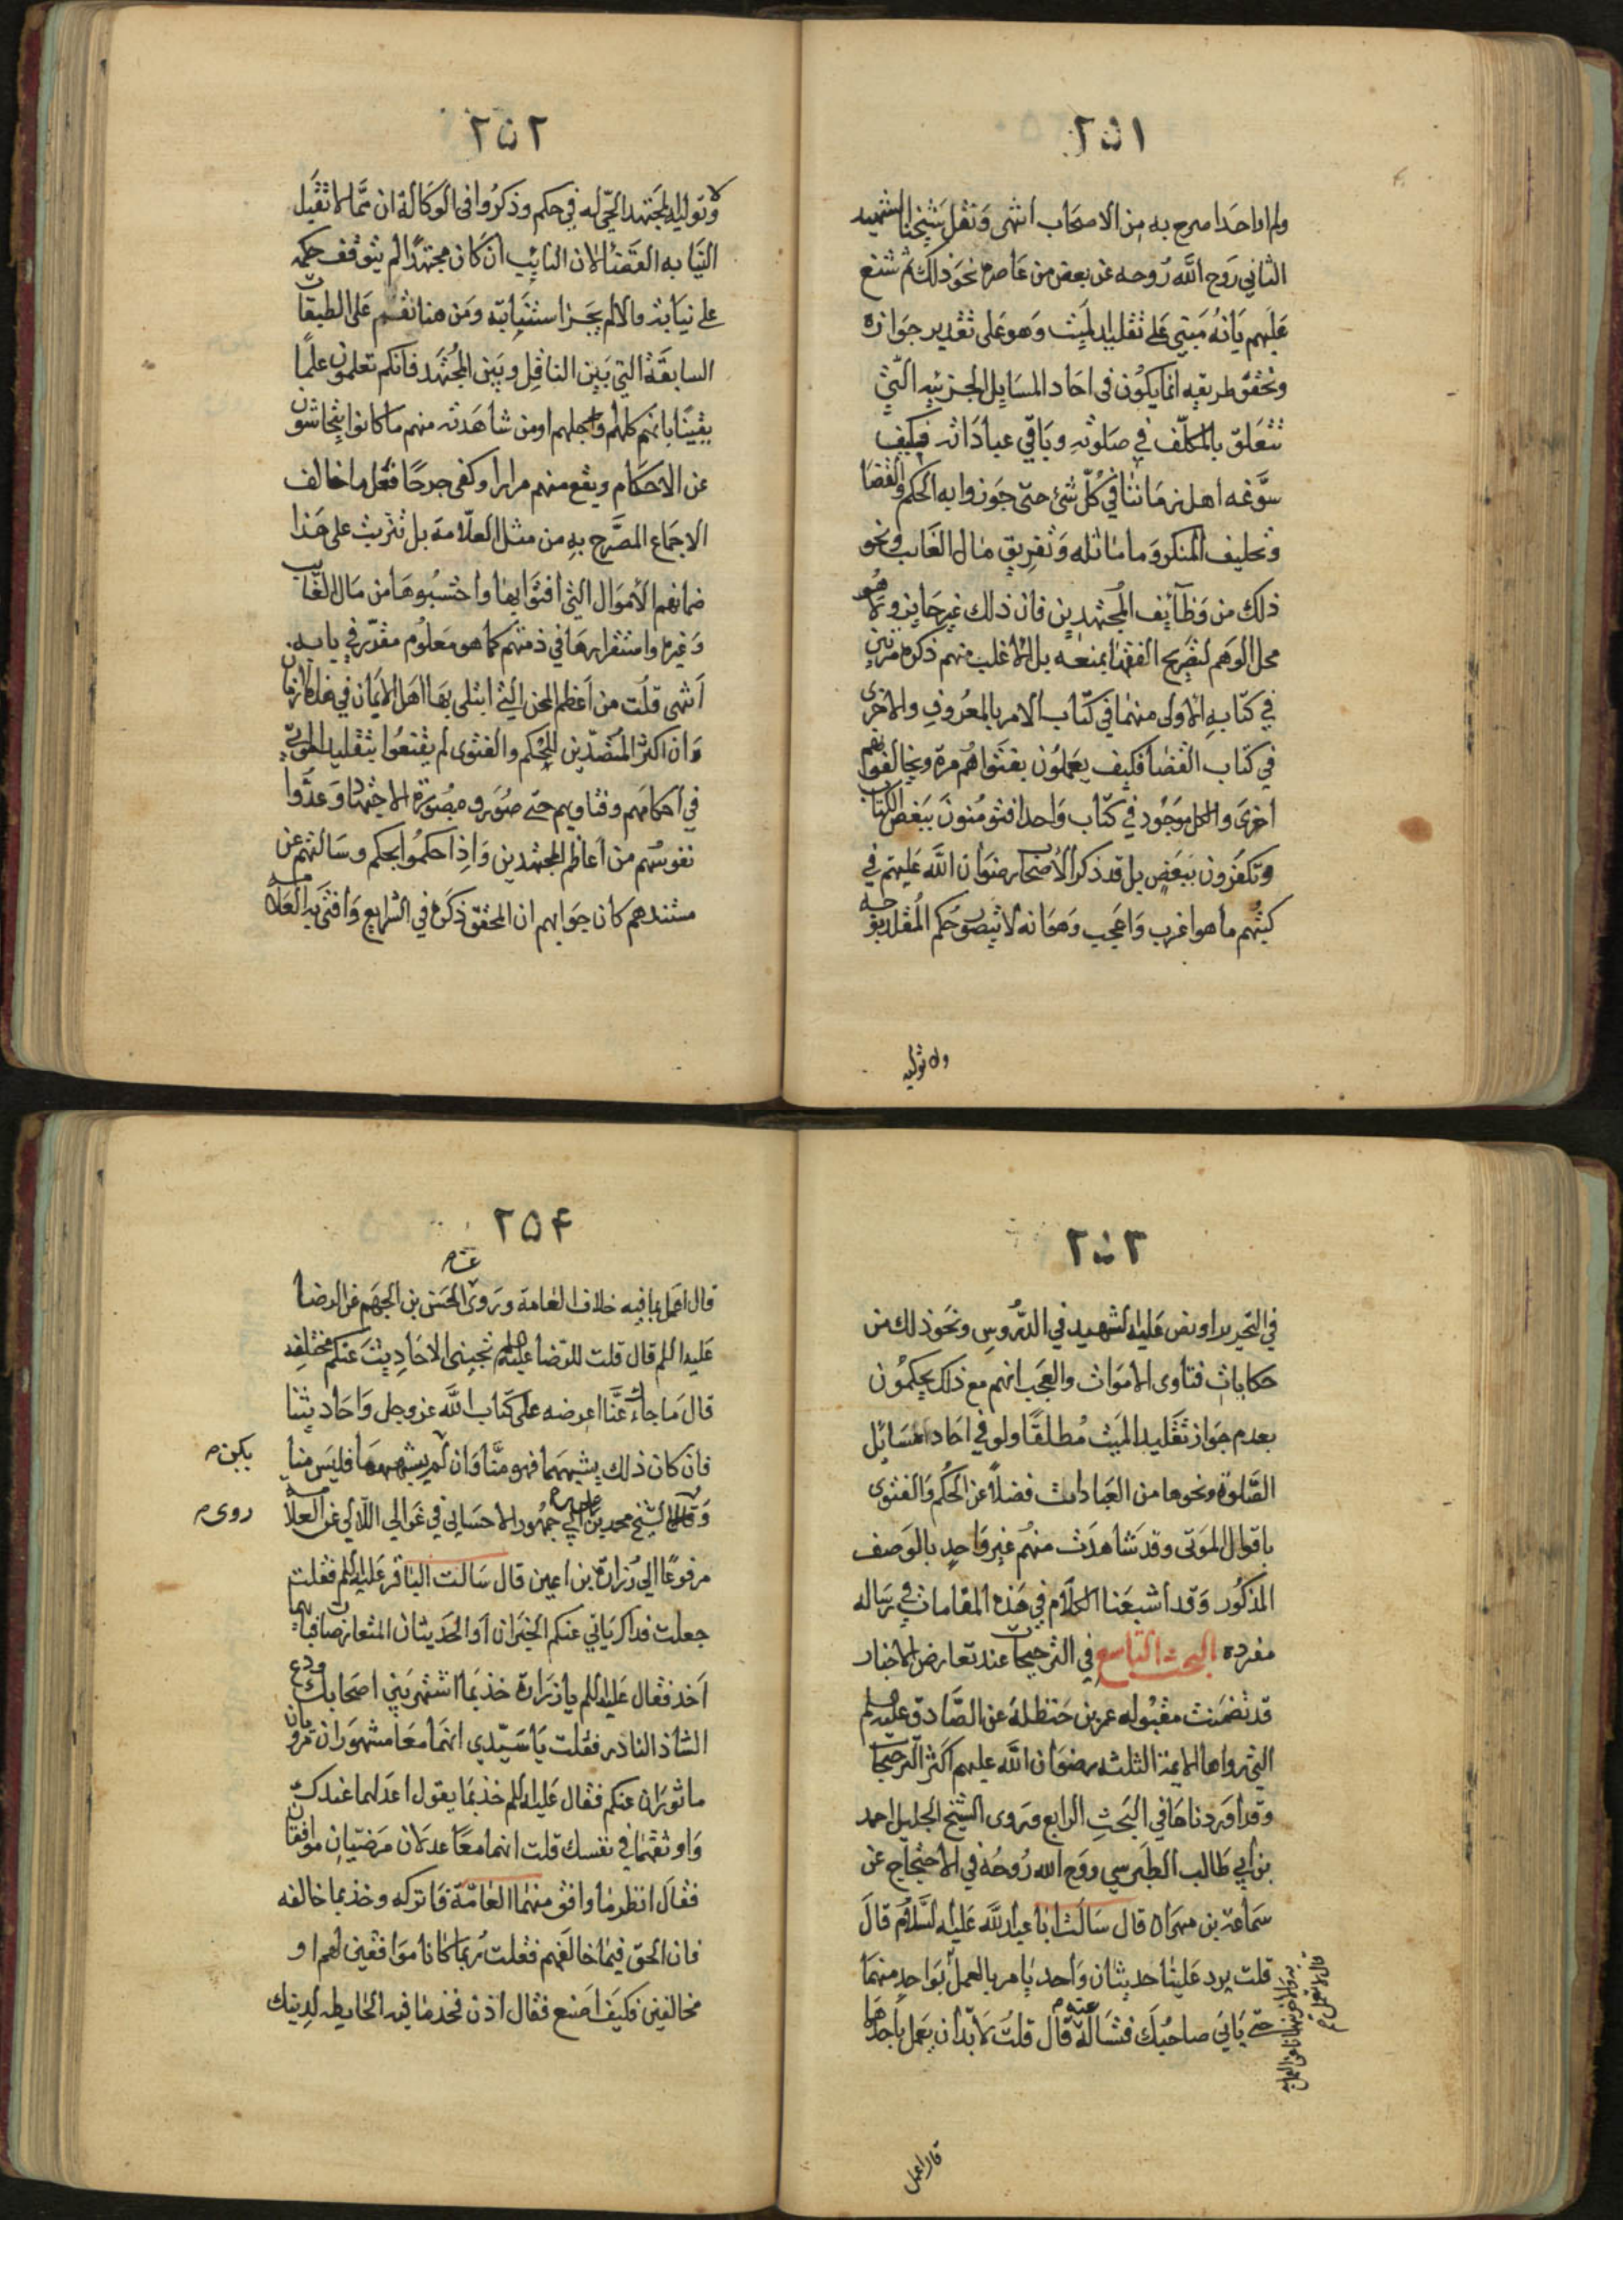 ٢٥١
ولم ار احدا صرح به من الاصحاب انتهى ونقل شيخنا الشهيد
الثاني روح الله روحه عن بعض من عاصره نحو ذلك ثم شنع
عليهم بانه مبني على تقليد الميت وهو على تقدير جوازه
وتحقق طريقه انما يكون في احاد المسايل الجزئيه التي
تتعلق بالمكلف في صلوته وباقي عباداته فكيف
سوغه اهل زماننا في كل شئ حتى جوزوا به الحكم والقضا
وتحليف المنكر وما ماثله وتفريق مال الغايب ونحو
ذلك من وظآئف المجتهدين فان ذلك غير جايز ولا هو
محل الوهم لتصريح الفقها بمنعه بل الاغلب منهم ذكره مرتين
في كتابه الاولى منهما في كتاب الامر بالمعروف والاخرى
في كتاب القضا فكيف يعملون بفتواهم مرة ويخالفونهم
اخرى والكل موجود في كتاب واحد افتومنون ببعض الكتاب
وتكفرون ببعض بل قد ذكر الاصحاب رضوان الله عليهم في
كتبهم ما هو اغرب واعجب وهو انه لا يتصور حكم المقلد بوجه
ولا توليه
٢٥٢
ولا توليه المجتهد الحي له في حكم وذكروا في الوكالة ان مما لا تقبل
النيابه القضا لان النائب ان كان مجتهدا لم يتوقف حكمه
على نيابة والا لم يجز استنيابته ومن هنا نقم على الطبقات
السابقة التي بين الناقل وبين المجتهد فانكم تعلمون علما
يقينا بانهم كلهم او جلهم او من شاهدته منهم ما كانوا يتحاشون
عن الاحكام ويقع منهم مرارا وكفى جرحا فعل ما خالف
الاجماع المصرح به من مثل العلامة بل تترتب على هذا
ضمانهم الاموال التي افتوا بها واحتسبوها من مال الغايب
وغيره واستقرارها في ذمتهم كما هو معلوم مقرر في بابه
انتهى قلت من اعظم المحن التي ابتلى بها اهل الايمان في هذه الازمان
ان اكثر المتصدين للحكم والفتوى لم يقنعوا بتقليد الموتى
في احكامهم وفتاويهم حتى صوروه بصورة الاجتهاد وعدوا
نفوسهم من اعاظم المجتهدين واذا حكموا بحكم وسالتهم عن
مستندهم كان جوابهم ان المحقق ذكره في الشرايع وافتى به العلامه
٢٥٣
في التحرير او نص عليه الشهيد في الدروس ونحو ذلك من
حكايات فتاوى الاموات والعجب انهم مع ذلك يحكمون
بعدم جواز تقليد الميت مطلقا ولو في احاد مسائل
الصلوة ونحوها من العبادات فضلا عن الحكم والفتوى
باقوال الموتى وقد شاهدت منهم غير واحد بالوصف
المذكور وقد اشبعنا الكلام في هذه المقامات في رساله
مفرده البحث التاسع في الترجيحات عند تعارض الاخبار
قد تضمنت مقبوله عمر بن حنظله عن الصادق عليه السلم
التي رواها الائمة الثلثه رضوان الله عليهم اكثر الترجيحات
وقد اوردناها في البحث الرابع وروى الشيخ الجليل احمد
بن ابي طالب الطبرسي روح الله روحه في الاحتجاج عن
سماعة بن مهران قال سالت ابا عبد الله عليه السلام قال
قلت يرد علينا حديثان واحد يامر بالعمل بواحد منهما
حتى ياتي صاحبك فتساله عنه قال قلت لا بد ان يعمل باحدهما
قال اعمل
٢٥٤
قال اعمل بما فيه خلاف العامة وروى عنه الحسن بن الجهم عن الرضا
عليه السلم قال قلت للرضا عليه السلم تجيئنى الاحاديث عنكم مختلفه
قال ما جاءك عنا اعرضه على كتاب الله عز وجل واحاديثنا
فان كان ذلك يشبههما فهو منا وان لم يشبههما فليس منا
يكن
الشيخ محمد بن علي بن ابي جمهور الاحسائي في غوالي اللآلي عن العلامه
روى
مرفوعا الى زرارة بن اعين قال سالت الباقر عليه السلم فقلت
جعلت فداك ياتي عنكم الخبران او الحديثان المتعارضان فبايهما
آخذ فقال عليه السلم يا زرارة خذ بما اشتهر بين اصحابك ودع
الشاذ النادر فقلت يا سيدي انهما معا مشهوران مرويان
ماثوران عنكم فقال عليه السلم خذ بما يقول اعدلهما عندك
واوثقهما في نفسك قلت انهما معا عدلان مرضيان موافقان
فقال انظر ما وافق منهما العامة فاتركه وخذ بما خالفه
فان الحق فيما خالفهم فقلت ربما كانا موافقين لهم او
مخالفين فكيف اصنع فقال اذن فخذ ما فيه الحايطه لدينك